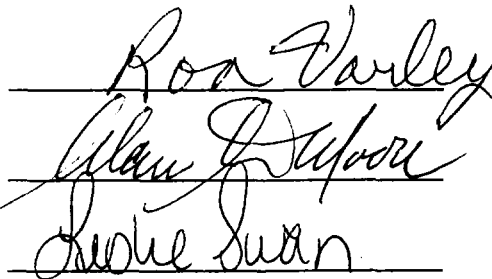 Ron Varley
Alan J. DeMoori
Leslie Swan